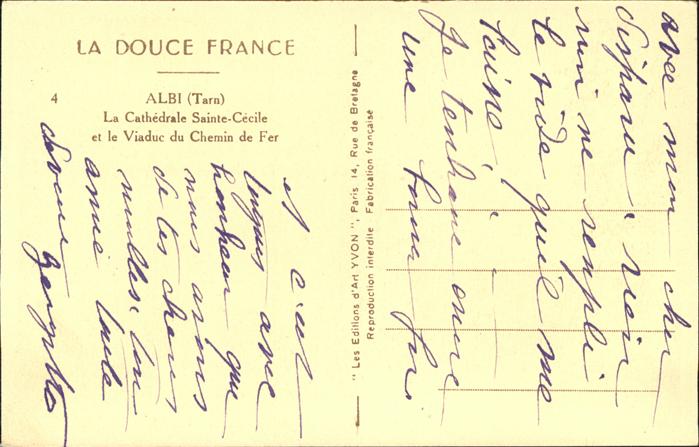 LA DOUCE FRANCE
4
ALBI (Tarn)
La Cathédrale Sainte-Cécile
et le Viaduc du Chemin de Fer
" Les Editions d'Art YVON ", Paris 14, Rue de Bretagne
Reproduction interdite Fabrication française
avec mon cher
disparu, rien
ne remplie
le vide qu'il me
Je
une bonne fois
et c'est
avec
bonheur que
nous avons
de tes chères
nouvelles. Ton
amie